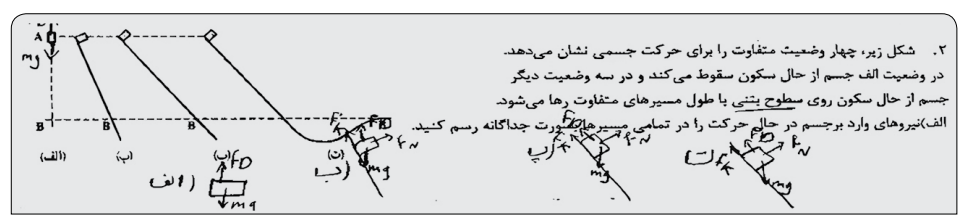 ۲. شکل زیر، چهار وضعیت متفاوت را برای حرکت جسمی نشان می‌دهد.
در وضعیت الف جسم از حال سکون سقوط می‌کند و در سه وضعیت دیگر
جسم از حال سکون روی سطوح بتنی با طول مسیرهای متفاوت رها می‌شود.
الف) نیروهای وارد برجسم در حال حرکت را در تمامی مسیرها بصورت جداگانه رسم کنید.
A
mg
B B B
(الف) (ب) (پ) (ت)
الف) FD mg
ب) FK FD FN mg
پ) FK FD FN mg
ت) FK FD FN mg